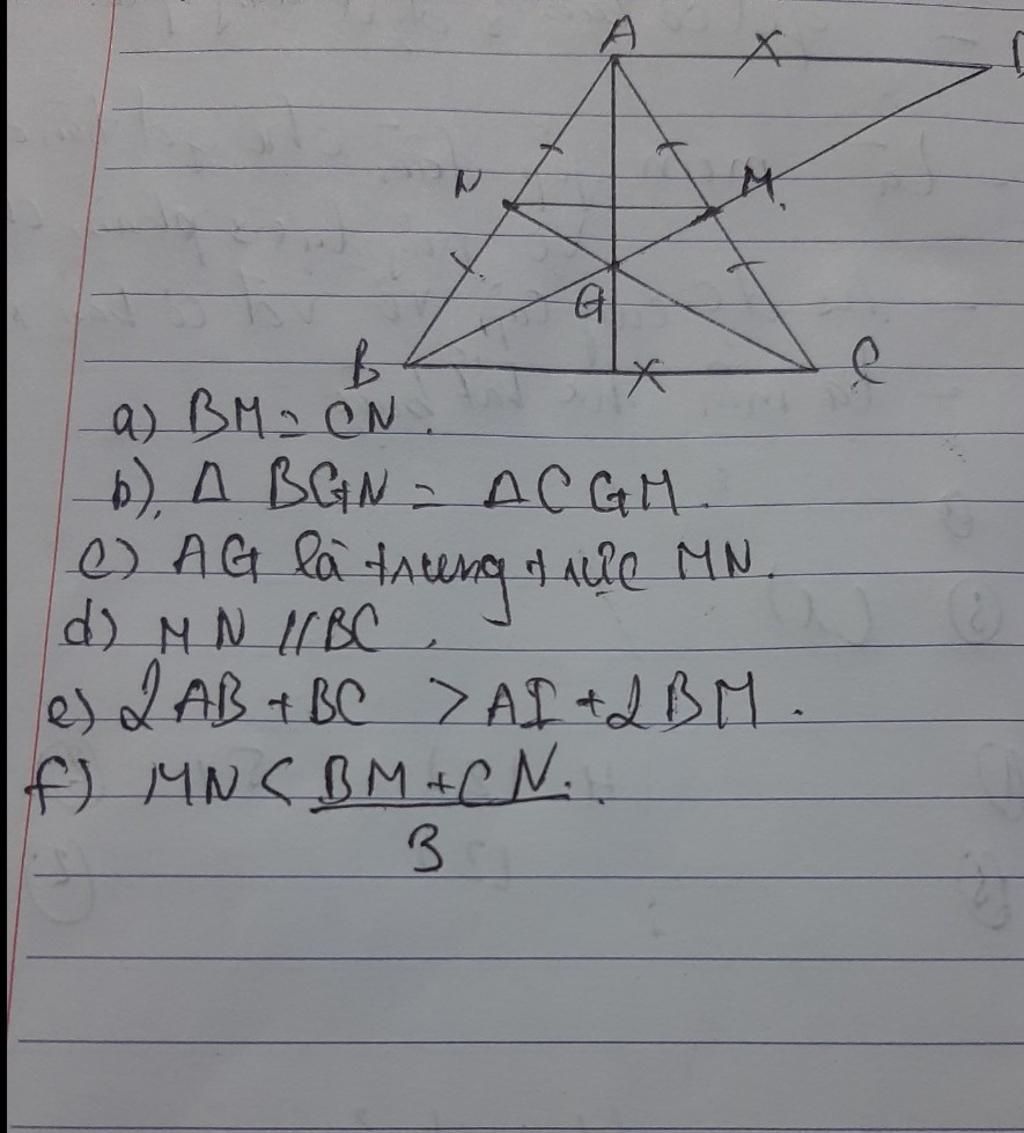 A
N
M.
G
B
C
a) BM = CN.
b), Δ BGN = ΔCGM.
c) AG là trung trực MN.
d) MN // BC.
e) 2AB + BC > AI + 2BM.
f) MN < BM + CN.
3